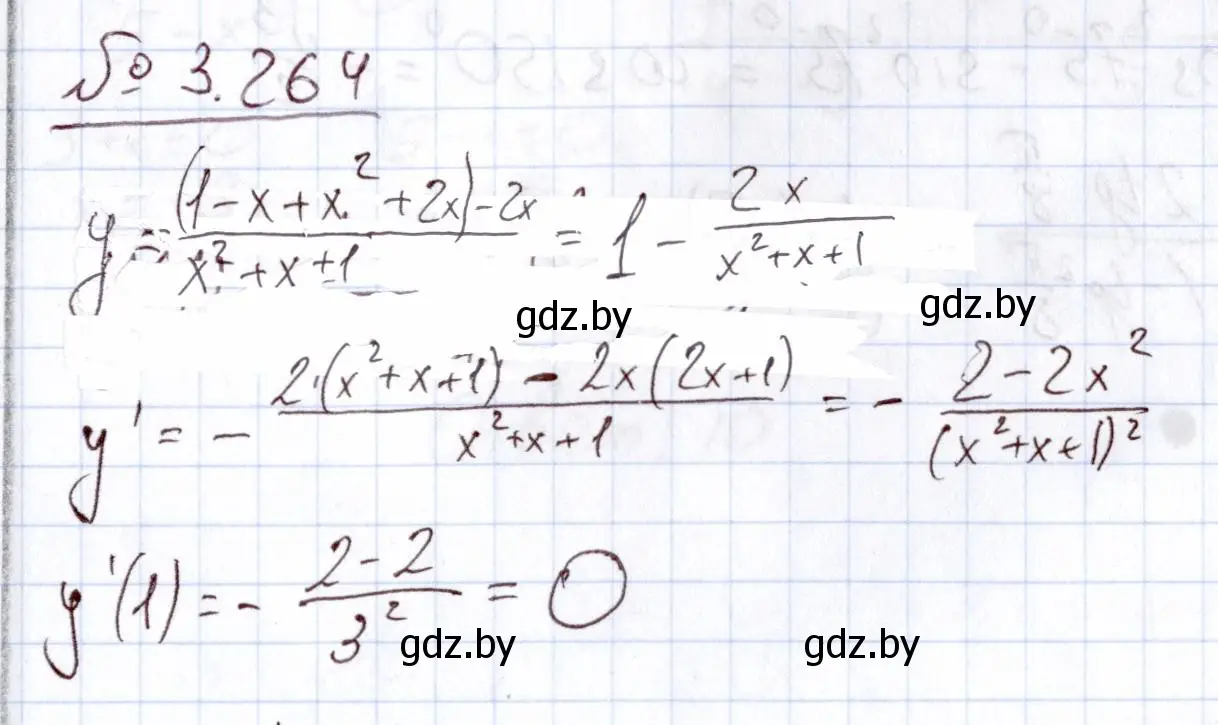 № 3.264
y = ((1 - x + x² + 2x) - 2x)/(x² + x + 1) = 1 - 2x/(x² + x + 1)
gdz.by gdz.by
y' = - (2·(x² + x + 1) - 2x(2x + 1))/(x² + x + 1) = - (2 - 2x²)/(x² + x + 1)²
y'(1) = - (2 - 2)/3² = 0
gdz.by gdz.by